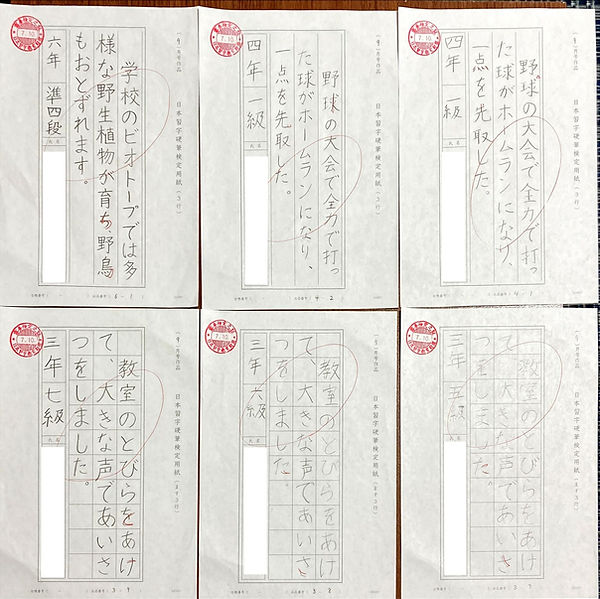 （9月号作品　日本習字硬筆検定用紙（3行）
学校のビオトープでは多
様な野生植物が育ち、野鳥
もおとずれます。
六年 準四段
氏名
7.10.
6-1
（9月号作品　日本習字硬筆検定用紙（3行）
野球の大会で全力で打っ
た球がホームランになり、
一点を先取した。
四年 一級
氏名
7.10.
4-2
（9月号作品　日本習字硬筆検定用紙（3行）
野球の大会で全力で打っ
た球がホームランになり、
一点を先取した。
四年 一級
氏名
7.10.
4-1
（9月号作品　日本習字硬筆検定用紙（ます3行）
教室のとびらをあけ
て、大きな声であいさ
つをしました。
三年 七級
氏名
7.10.
3-9
（9月号作品　日本習字硬筆検定用紙（ます3行）
教室のとびらをあけ
て、大きな声であいさ
つをしました。
三年 六級
氏名
7.10.
3-8
（9月号作品　日本習字硬筆検定用紙（ます3行）
教室のとびらをあけ
て、大きな声であいさ
つをしました。
三年 五級
氏名
7.10.
3-7